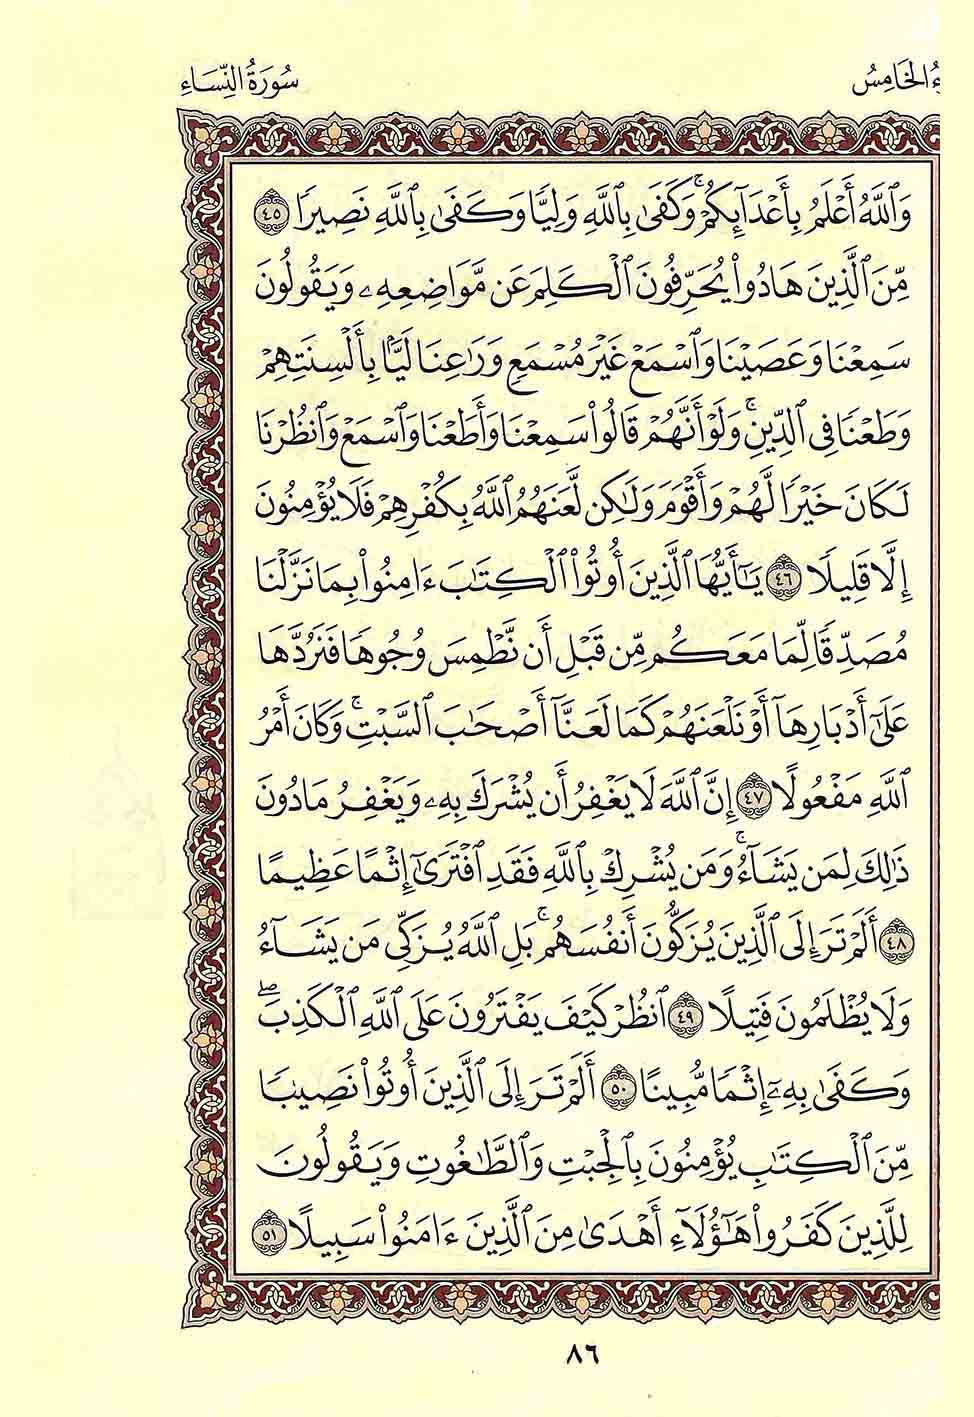 ءُ الْخَامِسُ سُورَةُ النِّسَاءِ
وَٱللَّهُ أَعْلَمُ بِأَعْدَآئِكُمْ ۚ وَكَفَىٰ بِٱللَّهِ وَلِيًّا وَكَفَىٰ بِٱللَّهِ نَصِيرًا ٤٥
مِّنَ ٱلَّذِينَ هَادُوا۟ يُحَرِّفُونَ ٱلْكَلِمَ عَن مَّوَاضِعِهِۦ وَيَقُولُونَ
سَمِعْنَا وَعَصَيْنَا وَٱسْمَعْ غَيْرَ مُسْمَعٍ وَرَٰعِنَا لَيًّۢا بِأَلْسِنَتِهِمْ
وَطَعْنًا فِى ٱلدِّينِ ۚ وَلَوْ أَنَّهُمْ قَالُوا۟ سَمِعْنَا وَأَطَعْنَا وَٱسْمَعْ وَٱنظُرْنَا
لَكَانَ خَيْرًا لَّهُمْ وَأَقْوَمَ وَلَٰكِن لَّعَنَهُمُ ٱللَّهُ بِكُفْرِهِمْ فَلَا يُؤْمِنُونَ
إِلَّا قَلِيلًا ٤٦ يَٰٓأَيُّهَا ٱلَّذِينَ أُوتُوا۟ ٱلْكِتَٰبَ ءَامِنُوا۟ بِمَا نَزَّلْنَا
مُصَدِّقًا لِّمَا مَعَكُم مِّن قَبْلِ أَن نَّطْمِسَ وُجُوهًا فَنَرُدَّهَا
عَلَىٰٓ أَدْبَارِهَآ أَوْ نَلْعَنَهُمْ كَمَا لَعَنَّآ أَصْحَٰبَ ٱلسَّبْتِ ۚ وَكَانَ أَمْرُ
ٱللَّهِ مَفْعُولًا ٤٧ إِنَّ ٱللَّهَ لَا يَغْفِرُ أَن يُشْرَكَ بِهِۦ وَيَغْفِرُ مَا دُونَ
ذَٰلِكَ لِمَن يَشَآءُ ۚ وَمَن يُشْرِكْ بِٱللَّهِ فَقَدِ ٱفْتَرَىٰٓ إِثْمًا عَظِيمًا
٤٨ أَلَمْ تَرَ إِلَى ٱلَّذِينَ يُزَكُّونَ أَنفُسَهُم ۚ بَلِ ٱللَّهُ يُزَكِّى مَن يَشَآءُ
وَلَا يُظْلَمُونَ فَتِيلًا ٤٩ ٱنظُرْ كَيْفَ يَفْتَرُونَ عَلَى ٱللَّهِ ٱلْكَذِبَ ۖ
وَكَفَىٰ بِهِۦٓ إِثْمًا مُّبِينًا ٥٠ أَلَمْ تَرَ إِلَى ٱلَّذِينَ أُوتُوا۟ نَصِيبًا
مِّنَ ٱلْكِتَٰبِ يُؤْمِنُونَ بِٱلْجِبْتِ وَٱلطَّٰغُوتِ وَيَقُولُونَ
لِلَّذِينَ كَفَرُوا۟ هَٰٓؤُلَآءِ أَهْدَىٰ مِنَ ٱلَّذِينَ ءَامَنُوا۟ سَبِيلًا ٥١
٨٦